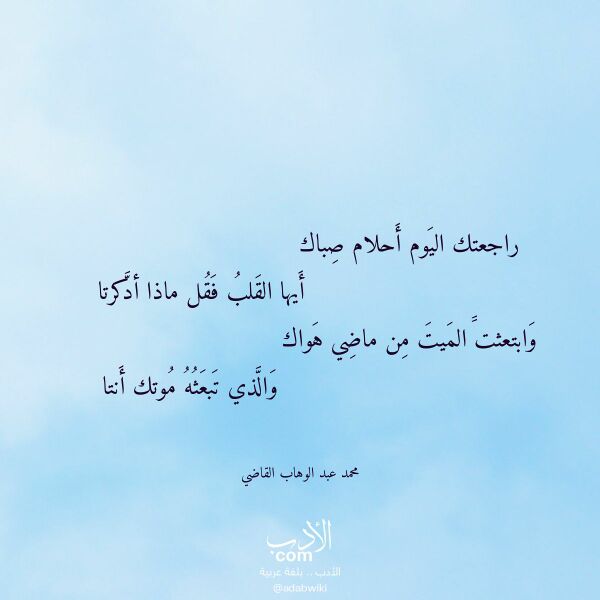 راجعتك اليَوم أَحلام صِباك
أَيها القَلبُ فَقُل ماذا أدَّكرتا
وَابتعثت َّالمَيتَ مِن ماضِي هَواك
وَالَّذي تَبعَثُهُ مُوتك أَنتا
محمد عبد الوهاب القاضي
الأدب
com
الأدب .. بلغة عربية
@adabwiki